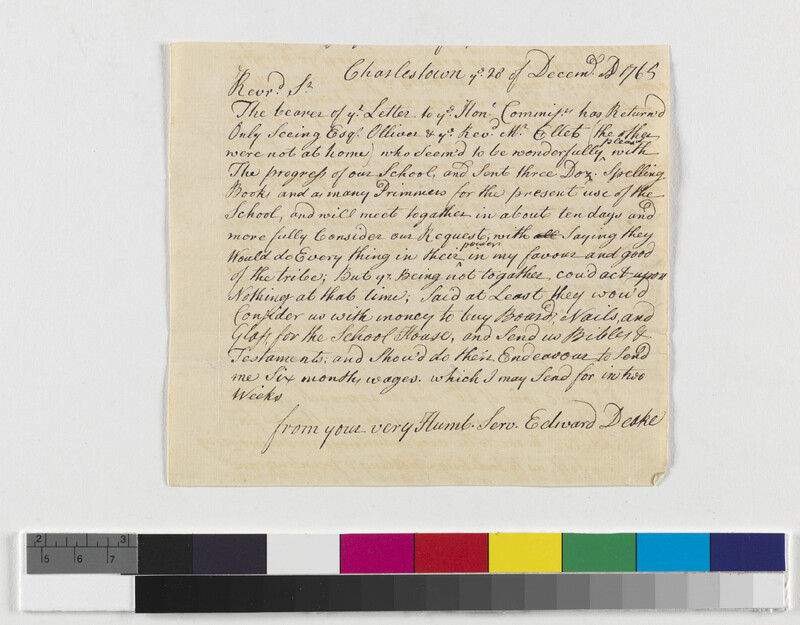 Charlestown ye 28 of Decemr. AD 1765
Revrd. Sr.
The bearer of yr. Letter to ye. Honl. Commissrs has Return'd
Only Seeing Esqr. Olliver & ye. Revd. Mr. Ellet (the other
were not at home) who seem'd to be wonderfully pleasd with
The progress of our School, and Sent three Doz. Spelling
Books and as many Primmers for the present use of the
School, and will meet togather in about ten days and
more fully Consider our Request, with all Saying they
Would do Every thing in their power in my favour and good
of the tribe; But ye. Being not togather coud act upon
Nothing at that time; Said at Least they wou'd
Consider us with money to buy Board, Nails, and
Glass for the School House, and Send us Bibles &
Testaments; and Shou'd do their Endeavour to Send
me Six months wages. which I may Send for in two
Weeks
from your very Humb. Serv. Edward Deake
2 3
5 6 7